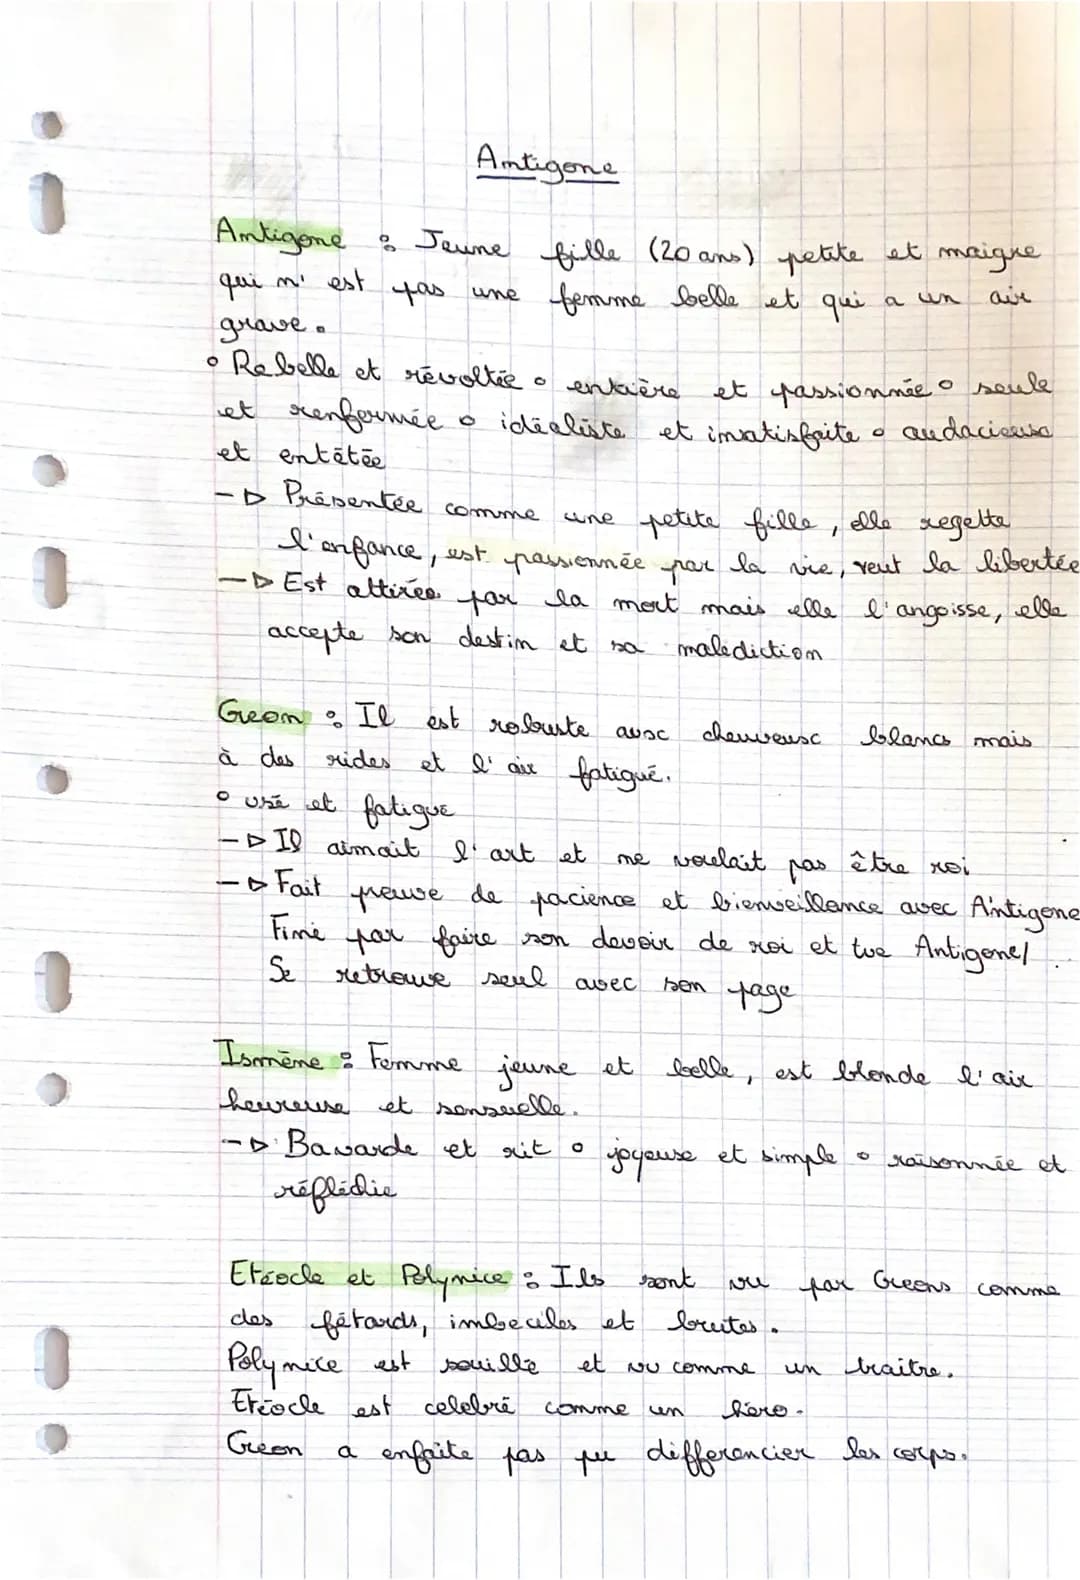 Antigone
Antigone : Jeune fille (20 ans) petite et maigre
qui n'est pas une femme belle et qui a un air
grave.
° Rebelle et révoltée ° entière et passionnée ° seule
et renfermée ° idéaliste et insatisfaite ° audacieuse
et entêtée
-> Présentée comme une petite fille, elle regette
l'enfance, est passionnée par la vie, veut la libertée
-> Est attirée par la mort mais elle l'angoisse, elle
accepte son destin et sa malediction
Creon : Il est robuste avec cheuveux blancs mais
à des rides et l'air fatigué.
° usé et fatigué
-> Il aimait l'art et ne voulait pas être roi
-> Fait preuve de pacience et bienveillance avec Antigone
Fini par faire son devoir de roi et tue Antigone/
Se retrouve seul avec son page
Ismène : Femme jeune et belle, est blonde l'air
heureuse et sensuelle.
-> Bavarde et rit ° joyeuse et simple ° raisonnée et
réfléchie
Etéocle et Polynice : Ils sont vu par Creons comme
des fêtards, imbeciles et brutes.
Polynice est souillé et vu comme un traitre.
Etéocle est celebré comme un héro.
Creon a enfaite pas pu différencier les corps.